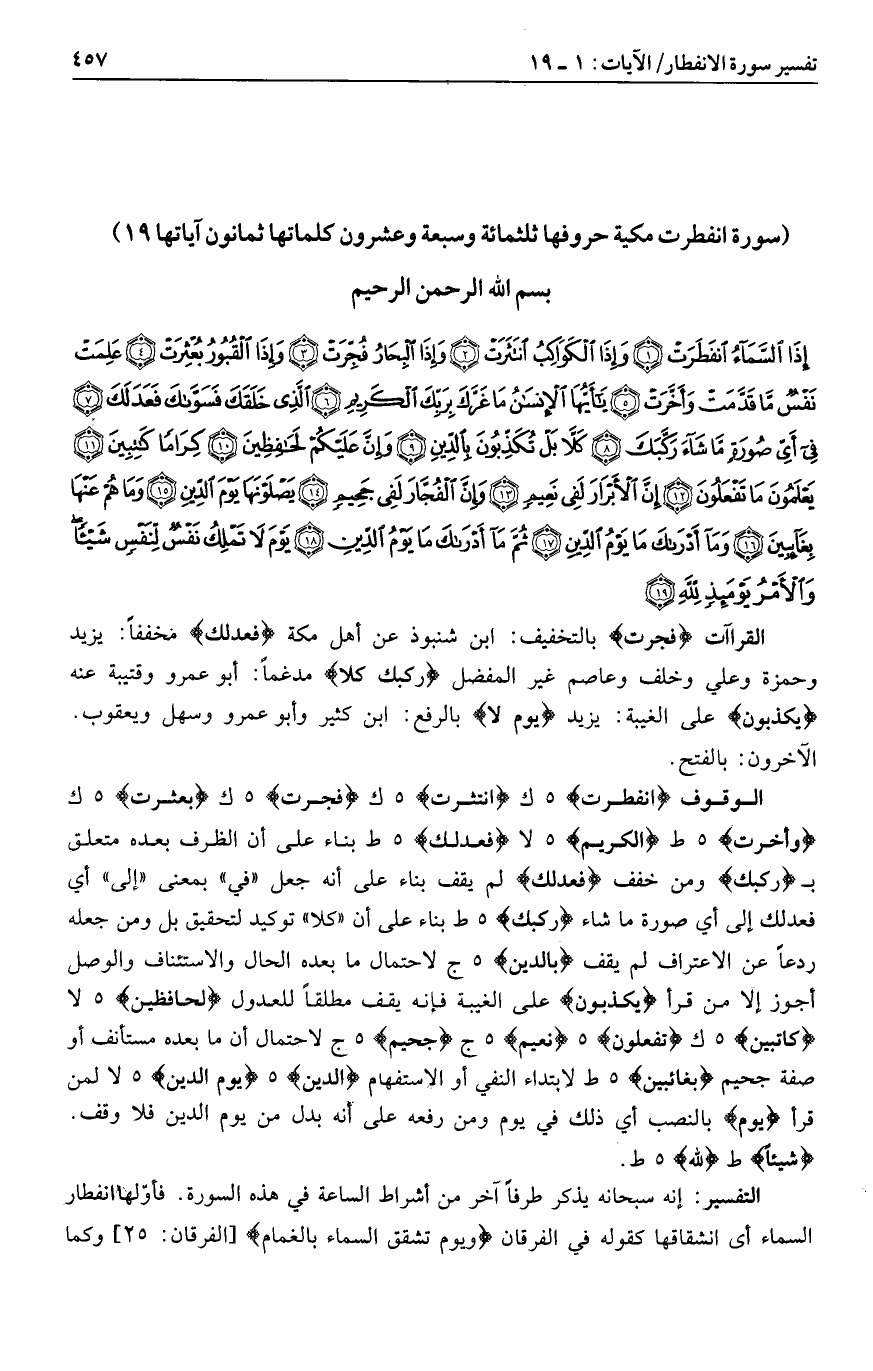 تفسير سورة الانفطار/ الآيات: ١ - ١٩ ٤٥٧
(سورة انفطرت مكية حروفها ثلثمائة وسبعة وعشرون كلماتها ثمانون آياتها ١٩)
بسم الله الرحمن الرحيم
إِذَا ٱلسَّمَآءُ ٱنفَطَرَتْ ﴿١﴾ وَإِذَا ٱلْكَوَاكِبُ ٱنتَثَرَتْ ﴿٢﴾ وَإِذَا ٱلْبِحَارُ فُجِّرَتْ ﴿٣﴾ وَإِذَا ٱلْقُبُورُ بُعْثِرَتْ ﴿٤﴾ عَلِمَتْ
نَفْسٌ مَّا قَدَّمَتْ وَأَخَّرَتْ ﴿٥﴾ يَٰٓأَيُّهَا ٱلْإِنسَٰنُ مَا غَرَّكَ بِرَبِّكَ ٱلْكَرِيمِ ﴿٦﴾ ٱلَّذِى خَلَقَكَ فَسَوَّىٰكَ فَعَدَلَكَ ﴿٧﴾
فِىٓ أَىِّ صُورَةٍ مَّا شَآءَ رَكَّبَكَ ﴿٨﴾ كَلَّا بَلْ تُكَذِّبُونَ بِٱلدِّينِ ﴿٩﴾ وَإِنَّ عَلَيْكُمْ لَحَٰفِظِينَ ﴿١٠﴾ كِرَامًا كَٰتِبِينَ ﴿١١﴾
يَعْلَمُونَ مَا تَفْعَلُونَ ﴿١٢﴾ إِنَّ ٱلْأَبْرَارَ لَفِى نَعِيمٍ ﴿١٣﴾ وَإِنَّ ٱلْفُجَّارَ لَفِى جَحِيمٍ ﴿١٤﴾ يَصْلَوْنَهَا يَوْمَ ٱلدِّينِ ﴿١٥﴾ وَمَا هُمْ عَنْهَا
بِغَآئِبِينَ ﴿١٦﴾ وَمَآ أَدْرَىٰكَ مَا يَوْمُ ٱلدِّينِ ﴿١٧﴾ ثُمَّ مَآ أَدْرَىٰكَ مَا يَوْمُ ٱلدِّينِ ﴿١٨﴾ يَوْمَ لَا تَمْلِكُ نَفْسٌ لِّنَفْسٍ شَيْـًٔا ۖ
وَٱلْأَمْرُ يَوْمَئِذٍ لِّلَّهِ ﴿١٩﴾
القراآت ﴿فجرت﴾ بالتخفيف: ابن شنبوذ عن أهل مكة ﴿فعدلك﴾ مخففاً: يزيد
وحمزة وعلي وخلف وعاصم غير المفضل ﴿ركبك كلا﴾ مدغماً: أبو عمرو وقتيبة عنه
﴿يكذبون﴾ على الغيبة: يزيد ﴿يوم لا﴾ بالرفع: ابن كثير وأبو عمرو وسهل ويعقوب.
الآخرون: بالفتح.
الوقوف ﴿انفطرت﴾ ٥ ك ﴿انتثرت﴾ ٥ ك ﴿فجرت﴾ ٥ ك ﴿بعثرت﴾ ٥ ك
﴿وأخرت﴾ ٥ ط ﴿الكريم﴾ ٥ لا ﴿فعدلك﴾ ٥ ط بناء على أن الظرف بعده متعلق
بـ ﴿ركبك﴾ ومن خفف ﴿فعدلك﴾ لم يقف بناء على أنه جعل «في» بمعنى «إلى» أي
فعدلك إلى أي صورة ما شاء ﴿ركبك﴾ ٥ ط بناء على أن «كلا» توكيد لتحقيق بل ومن جعله
ردعاً عن الاعتراف لم يقف ﴿بالدين﴾ ٥ ج لاحتمال ما بعده الحال والاستئناف والوصل
أجوز إلا من قرأ ﴿يكذبون﴾ على الغيبة فإنه يقف مطلقاً للعدول ﴿لحافظين﴾ ٥ لا
﴿كاتبين﴾ ٥ ك ﴿تفعلون﴾ ٥ ﴿نعيم﴾ ٥ ج ﴿جحيم﴾ ٥ ج لاحتمال أن ما بعده مستأنف أو
صفة جحيم ﴿بغائبين﴾ ٥ ط لابتداء النفي أو الاستفهام ﴿الدين﴾ ٥ ﴿يوم الدين﴾ ٥ لا لمن
قرأ ﴿يوم﴾ بالنصب أي ذلك في يوم ومن رفعه على أنه بدل من يوم الدين فلا وقف.
﴿شيئاً﴾ ط ﴿لله﴾ ٥ ط.
التفسير: إنه سبحانه يذكر طرفاً آخر من أشراط الساعة في هذه السورة. فأوّلها انفطار
السماء أى انشقاقها كقوله في الفرقان ﴿ويوم تشقق السماء بالغمام﴾ [الفرقان: ٢٥] وكما